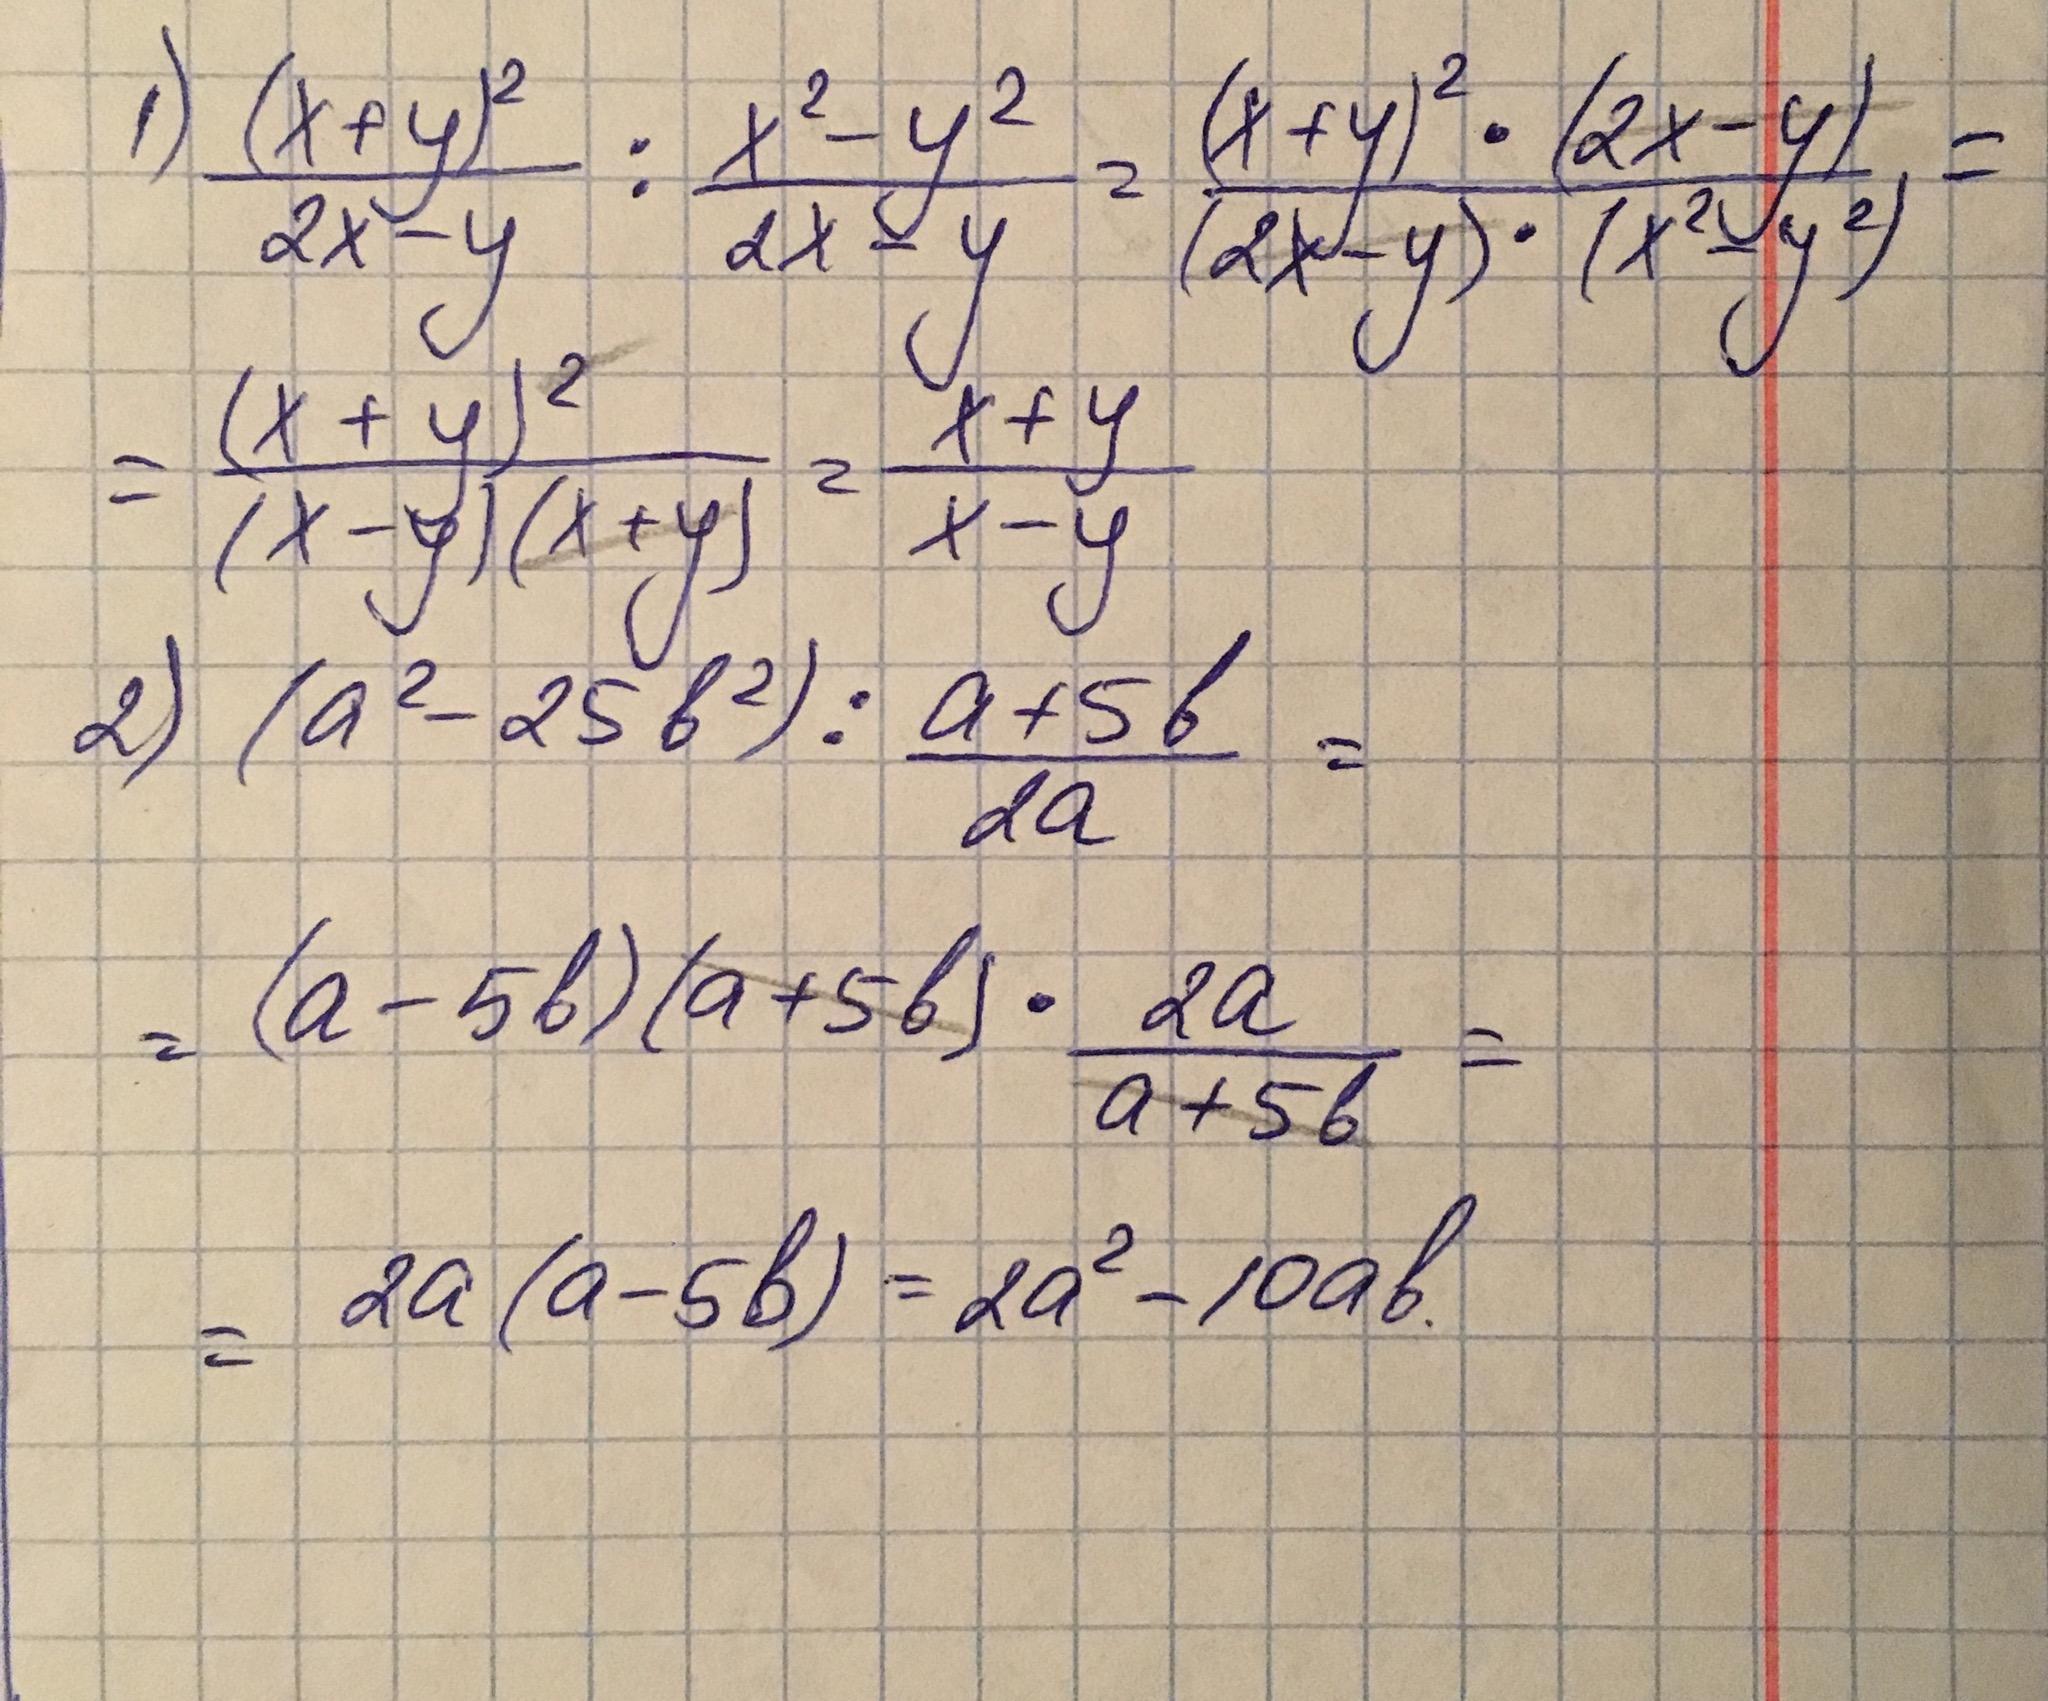 1) (x+y)²/(2x-y) : (x²-y²)/(2x-y) = ((x+y)²·(2x-y))/((2x-y)·(x²-y²)) =
= (x+y)²/((x-y)(x+y)) = (x+y)/(x-y)
2) (a²-25b²) : (a+5b)/(2a) =
= (a-5b)(a+5b) · 2a/(a+5b) =
= 2a(a-5b) = 2a²-10ab.